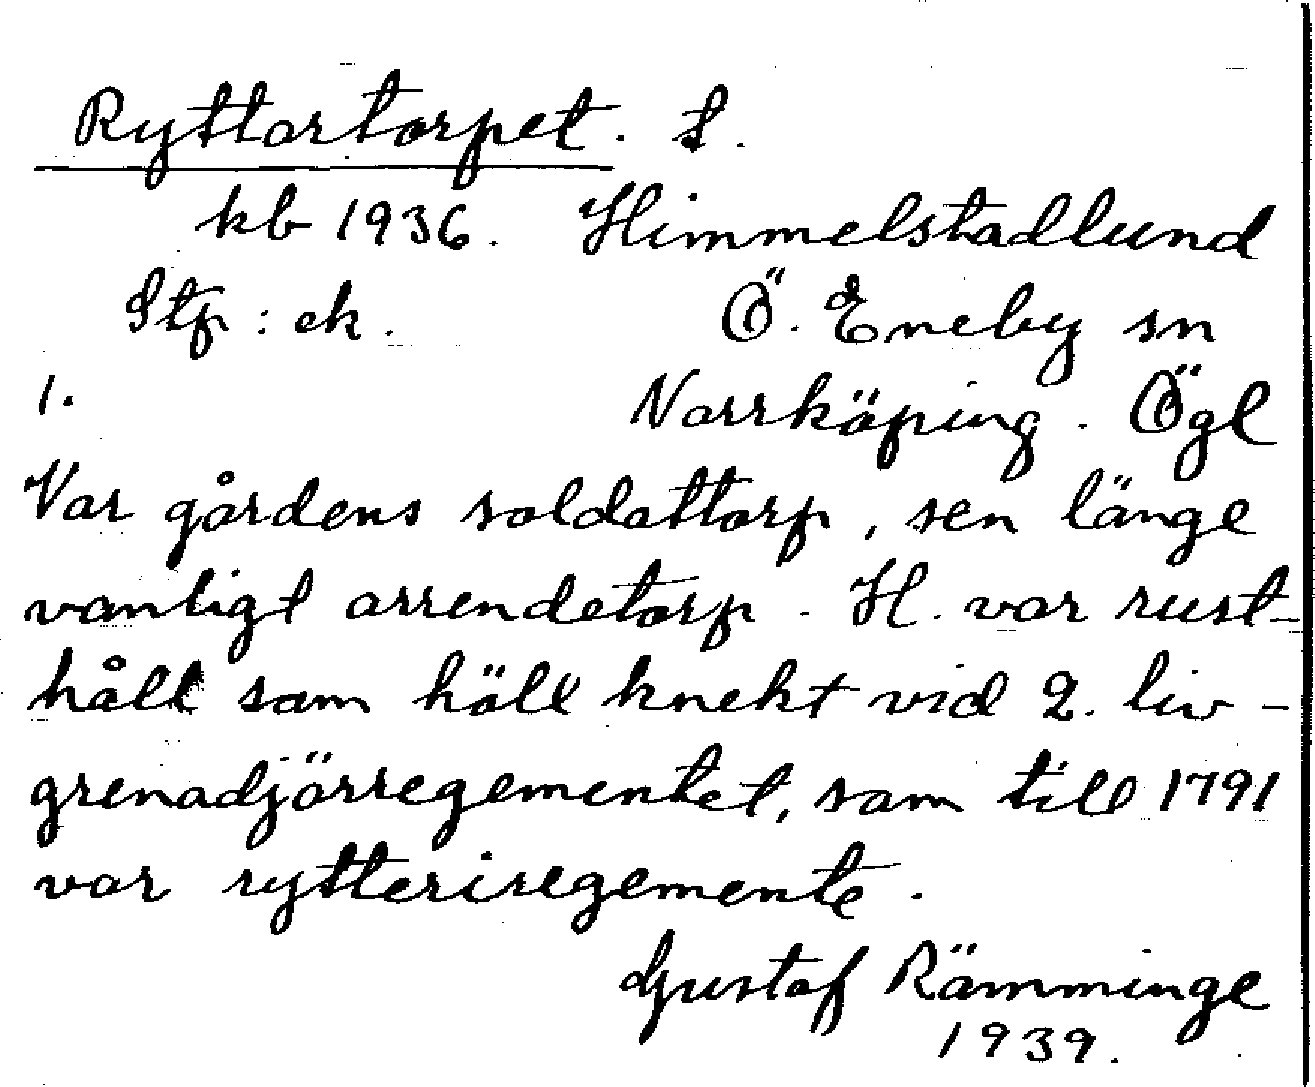 Ryttartorpet. t.
kb 1936. Himmelstadlund
Stp: ek. Ö. Eneby sn
1. Norrköping. Ögl
Var gårdens soldattorp, sen länge
vanligt arrendetorp. H. var rust-
håll som höll knekt vid 2. liv-
grenadjärregementet, som till 1791
var rytteriregemente.
Gustaf Rämminge
1939.